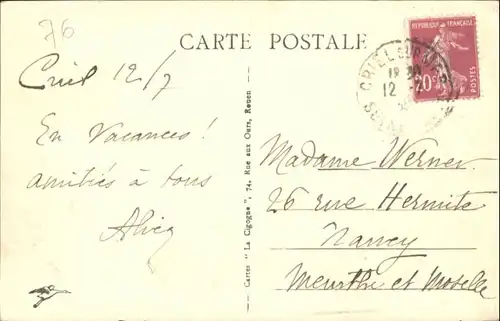 76
CARTE POSTALE
Criel 12/7
En Vacances!
amitiés à tous
Alice
Cartes "La Cigogne", 74, Rue aux Ours, Rouen
REPUBLIQUE FRANÇAISE
20c
POSTES
CRIEL SUR MER
12
Madame Werner
26 rue Hermite
Nancy
Meurthe et Moselle